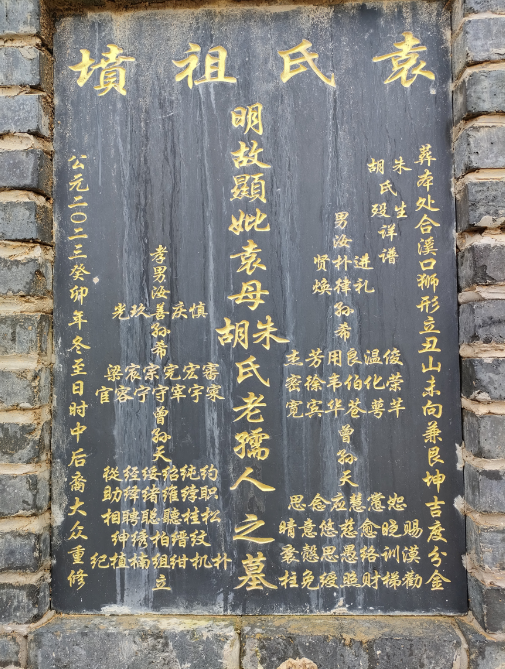 袁氏祖墳
葬本处合溪口狮形立丑山未向兼艮坤吉度分金
朱
胡氏生殁详谱
男汝
贤朴进
焕律礼
孙希
杰芳用良温俊
密徐韦伯化荣
宽宾华苍萼芊
曾孙天
思念应慧宪恕
晴意悠慈愈晚赐
衷慇思愚络训漠
柱免绶照财梯勸
明故顯妣袁母朱胡氏老孺人之墓
孝男汝善孙希
光玖庆慎
梁宸宗宪宏審
官容宁守宰宇家
曾孙天
從经绥绍纯约
助绎绪维綍职
相聘聪聽桂松
绅绣柏缙纹
纪植楠组绀机朴
立
公元二〇二三癸卯年冬至日时中后裔大众重修